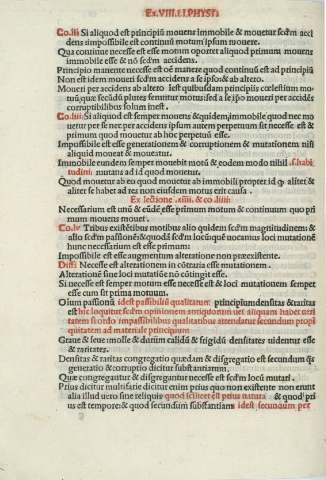 Ex.VIII.LI.PHYSI.
Co.lii Si aliquod est principiũ mouens immobile & mouetur scđm acci
dens impossibile est continuũ motum ipsum mouere.
Qua continue necesse est esse motum oportet aliquod primum mouens
immobile esse & nõ scđm accidens.
Principio manente necesse est oẽ manere quod continuũ est ad principiũ
Non est idem moueri scđm accidens a se ipso & ab altero.
Moueri per accidens ab altero iest quibusdam principiis cœlestium mo
tuũ, quæ secũdũ plures feruntur motus: sed a se ipso moueri per accidẽs
corruptibilibus solum inest.
Co.liii Si aliquod est semper mouens &quidem, immobile quod nec mo
uetur per se nec per accidens ipsum autem perpetuum sit necesse est &
primum quod mouetur ab hoc perpetuũ esse.
Impossibile est esse generationem & corruptionem & mutationem nisi
aliquid moueat & mouetur.
Immobile eundem semper mouebit motũ & eodem modo nihil s.habi
tudini: mutans ad id quod mouetur.
Quod mouetur ab eo quod mouetur ab immobili propter id q aliter &
aliter se habet ad res non eiusdem motus erit causa.
Ex lectione .xiiii. & co.liiii
Necessarium est unũ & eũdẽ esse primum motum & continuum quo pri
mum mouens mouet.
Co.lv Tribus existẽtibus motibus alio quidem scđm magnitudinem: &
alio scđm passionẽ:&quodã scđm locũ:quẽ uocamus loci mutationẽ
hunc necessarium est esse primum:
Impossibile est esse augmentum alteratione non præexistente.
Diffi Necesse est alterationem in cõtraria esse mutationem.
Alterationẽ sine loci mutatiõe nõ cõtingit esse.
Si necesse est semper motum esse necesse est & loci mutationem semper
esse cum sit prima motuum.
Oium passionũ idest passibiliũ qualitatum: principium:densitas & raritas
est hic loquitur scđm opinionem antiquorum uel aliquam habet ueri
tatem si ordo impassibilibus qualitatibus attendatur secundum propi
quitatem ad materiale principium
Graue & leue molle & durũm calidũ & frigidũ densitates uidentur esse
& raritates.
Densitas & raritas congregatio quædam & disgregatio est secundum q
generatio & corruptio dicitur substantiarum.
Quæ congregantur & disgregantur necesse est scđm locũ mutari.
Prius dicitur multifarie dicitur enim prius quo non existente non erunt
alia illud uero sine reliquis quod scilicet est prius natura & quod pri
us est tempore:& quod secundum substantiam idest secundum per